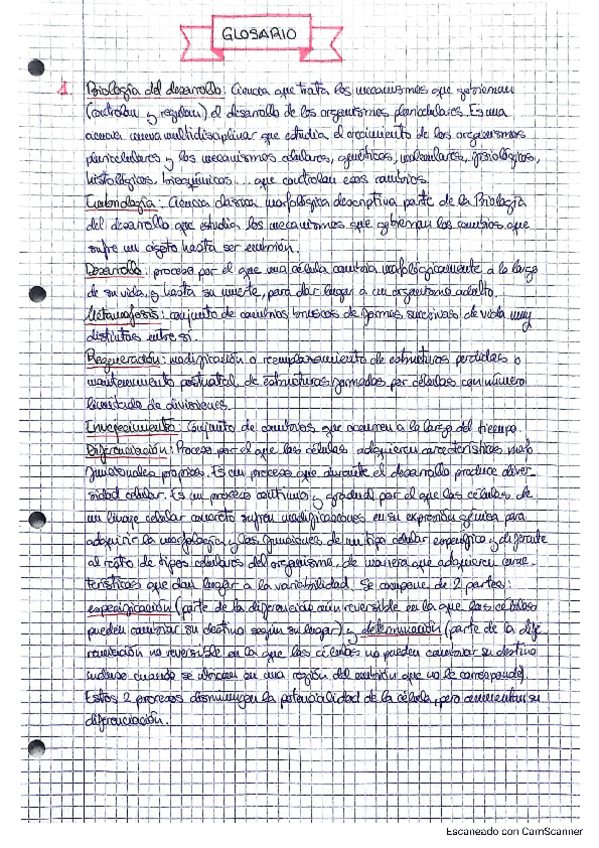 GLOSARIO
1 Biología del desarrollo: Ciencia que trata los mecanismos que gobiernan
(controlan y regulan) el desarrollo de los organismos pluricelulares. Es una
ciencia nueva multidisciplinar que estudia el crecimiento de los organismos
pluricelulares y los mecanismos celulares, genéticos, moleculares, fisiológicos,
histológicos, bioquímicos... que controlan esos cambios.
Embriología: Ciencia clásica morfológica descriptiva parte de la Biología
del desarrollo que estudia los mecanismos que gobiernan los cambios que
sufre un cigoto hasta ser embrión.
Desarrollo: proceso por el que una célula cambia morfológicamente a lo largo
de su vida, y hasta su muerte, para dar lugar a un organismo adulto.
Metamorfosis: conjunto de cambios bruscos de formas sucesivas de vida muy
distintas entre sí.
Regeneración: modificación o reemplazamiento de estructuras perdidas o
mantenimiento postnatal de estructuras formadas por células con número
limitado de divisiones.
Envejecimiento: Conjunto de cambios que ocurren a lo largo del tiempo.
Diferenciación: Proceso por el que las células adquieren características
funcionales propias. Es un proceso que durante el desarrollo produce diver-
sidad celular. Es un proceso continuo y gradual por el que las células de
un linaje celular concreto sufren modificaciones en su expresión génica para
adquirir la morfología y las funciones de un tipo celular específico y diferente
al resto de tipos celulares del organismo, de manera que adquieren carac-
terísticas que dan lugar a la variabilidad. Se compone de 2 partes:
especificación (parte de la diferenciación reversible en la que las células
pueden cambiar su destino según su lugar) y determinación (parte de la dife
renciación no reversible en la que las células no pueden cambiar su destino
incluso cuando se ubican en una región del embrión que no le corresponde).
Estos 2 procesos disminuyen la potencialidad de la célula, pero aumentan su
diferenciación.
Escaneado con CamScanner